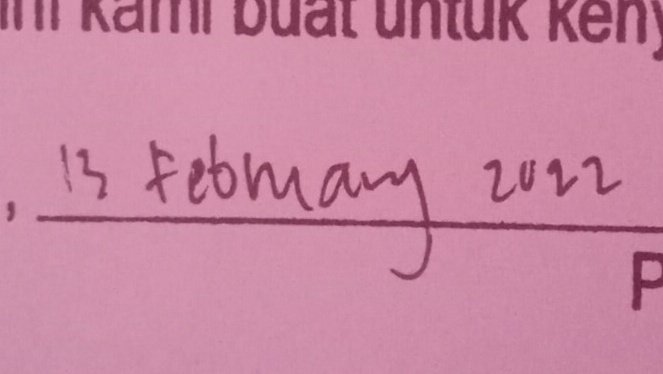 ini kami buat untuk keny
, 13 February 2022
P